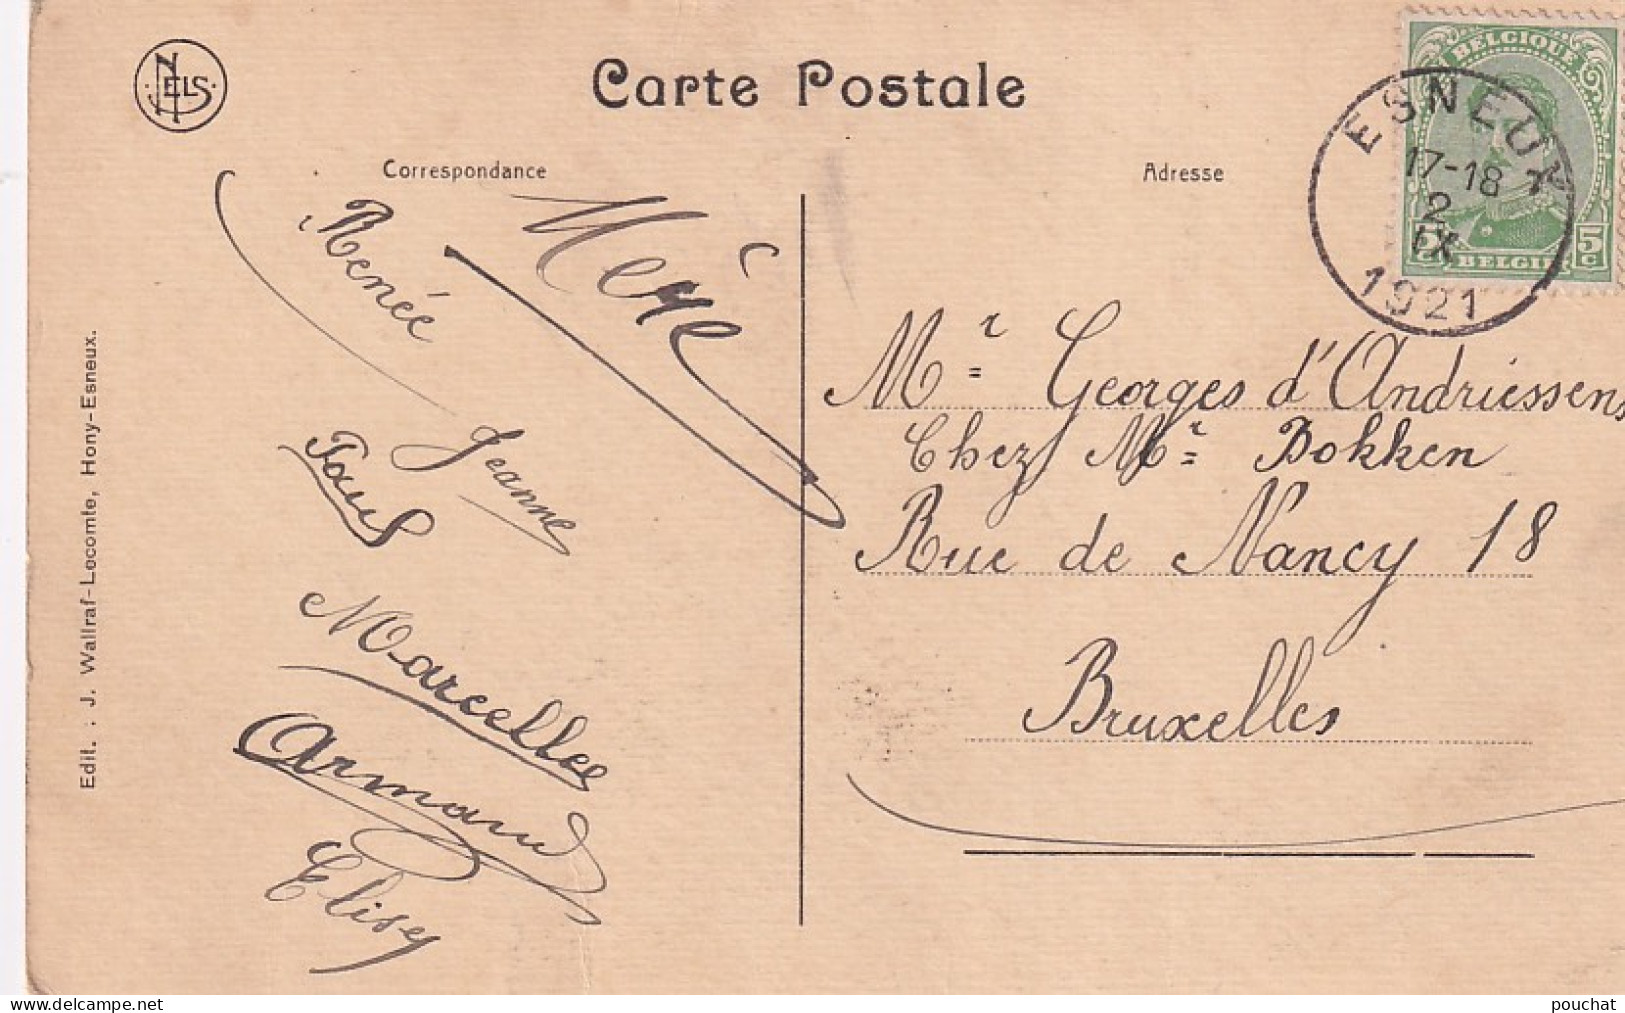 NELS
Carte Postale
Correspondance
Adresse
BELGIQUE
5c 5c
BELGIE
ESNEUX
17-18
2
IX
1921
Renée
Jeanne
Paul
Marcelle
Armand
Elisey
Mr Georges d'Andriessens
Chez Mr Bokken
Rue de Nancy 18
Bruxelles
Edit. : J. Wallraf-Lecomte, Hony-Esneux.
pouchat